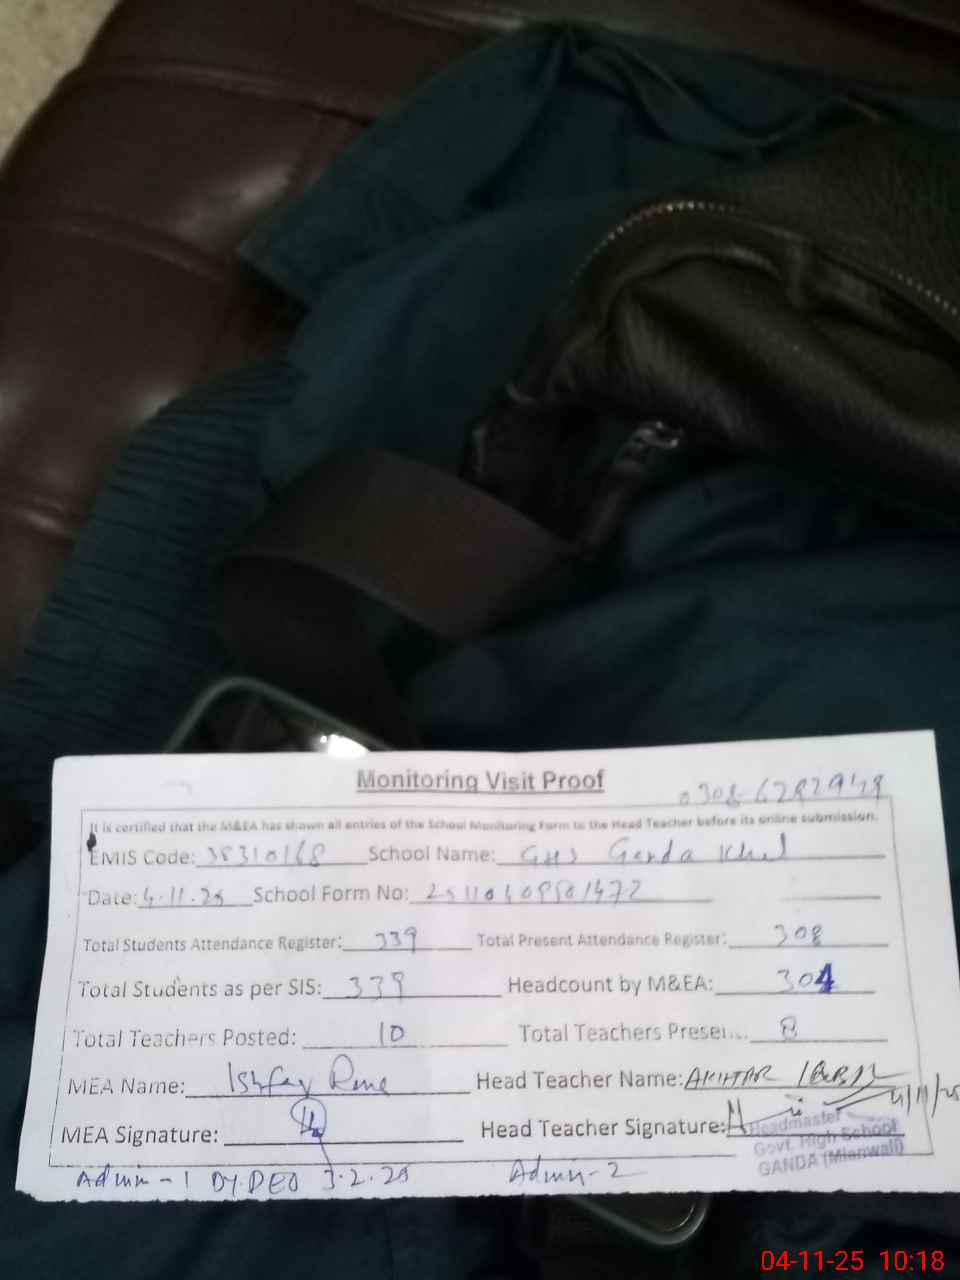 Monitoring Visit Proof
It is certified that the M&EA has shown all entries of the School Monitoring Form to the Head Teacher before its online submission.
EMIS Code: 38310168 School Name: GHS Ganda Khel
Date: 4.11.25 School Form No:
Total Students Attendance Register: 339 Total Present Attendance Register: 308
Total Students as per SIS: 339 Headcount by M&EA: 304
Total Teachers Posted: 10 Total Teachers Presen... 8
MEA Name: Head Teacher Name: AKHTAR
MEA Signature: Head Teacher Signature: 4/11/25
Headmaster
Govt. High School
GANDA (Mianwali)
Admn-1 DY.DEO 3.2.25 Admn-2
04-11-25 10:18